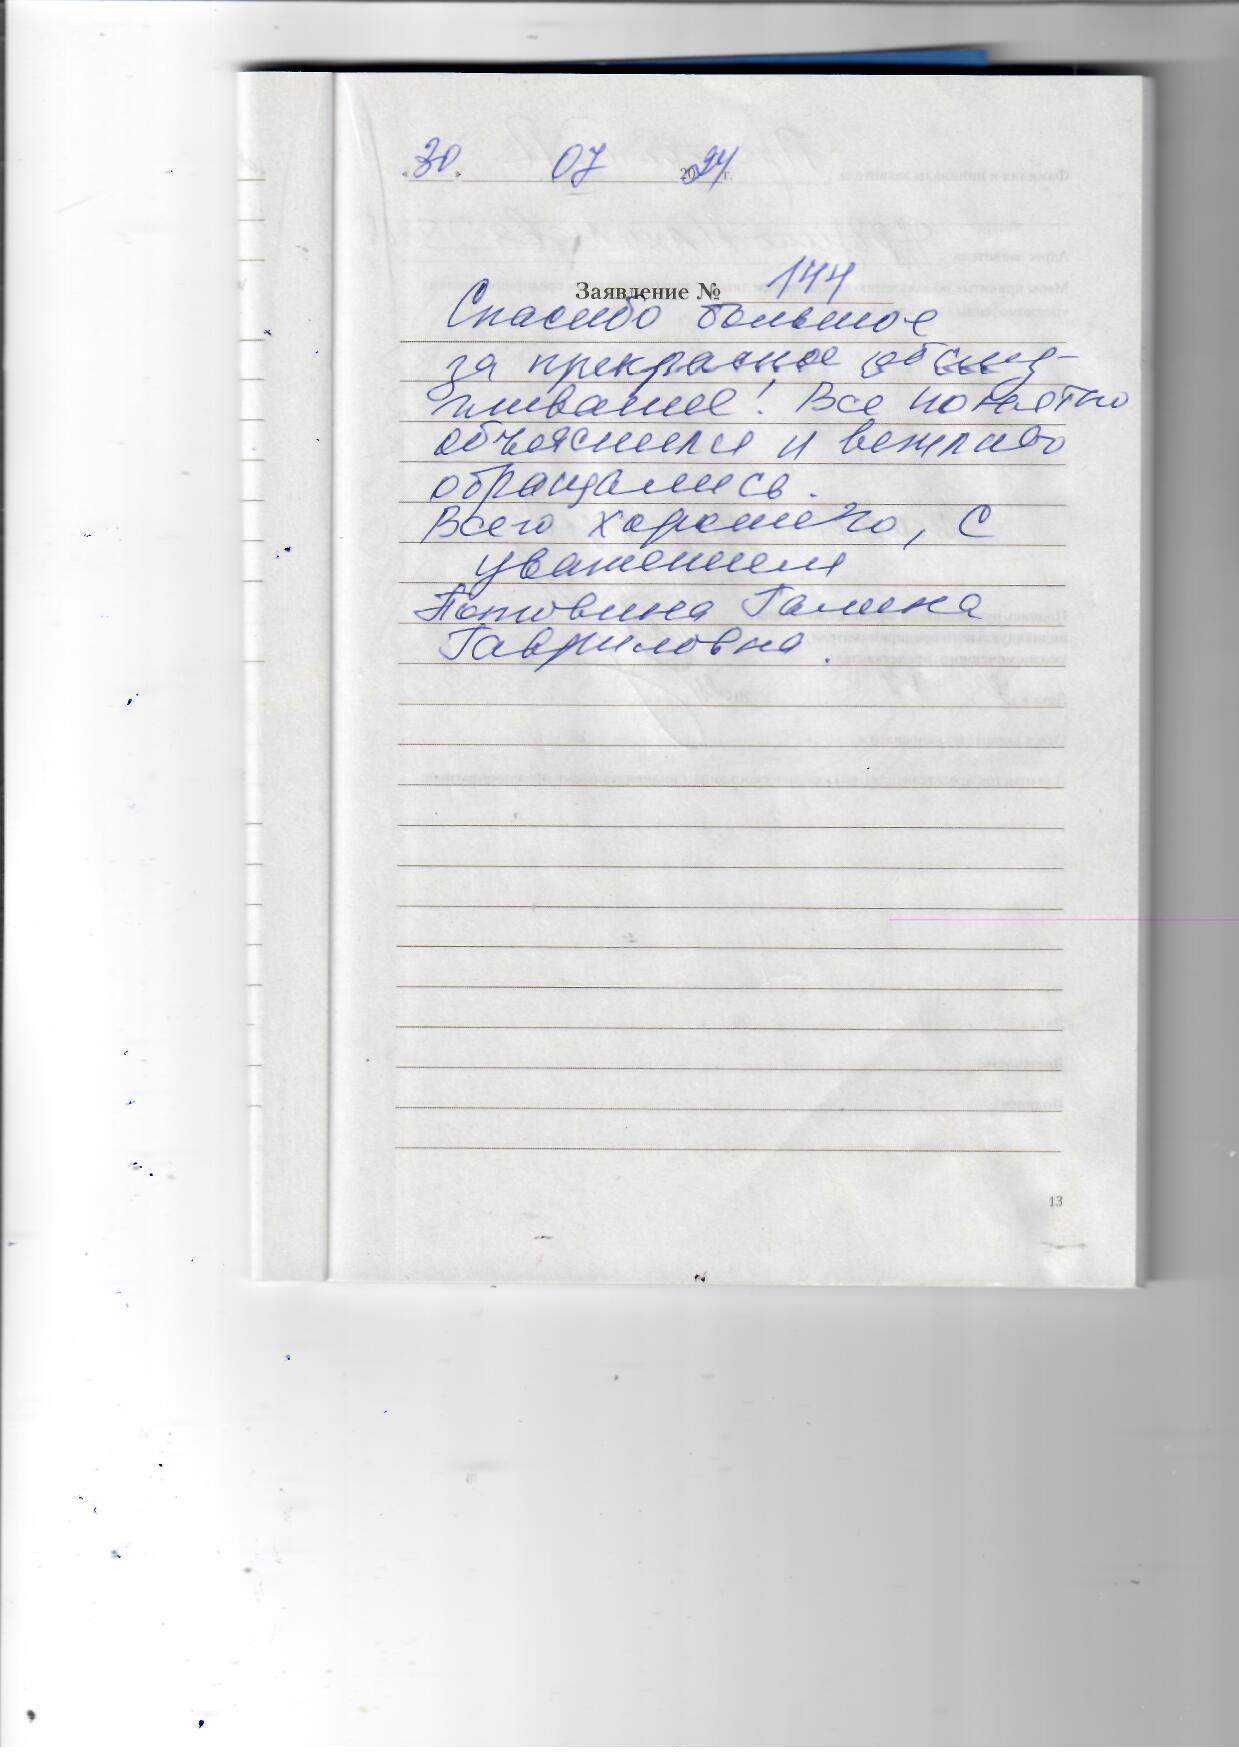 «30» 07 2024 г.
Заявление № 144
Спасибо большое
за прекрасное обслу-
живание! Все понятно
объяснили и вежливо
обращались.
Всего хорошего, с
уважением
Галина
Гавриловна.
13